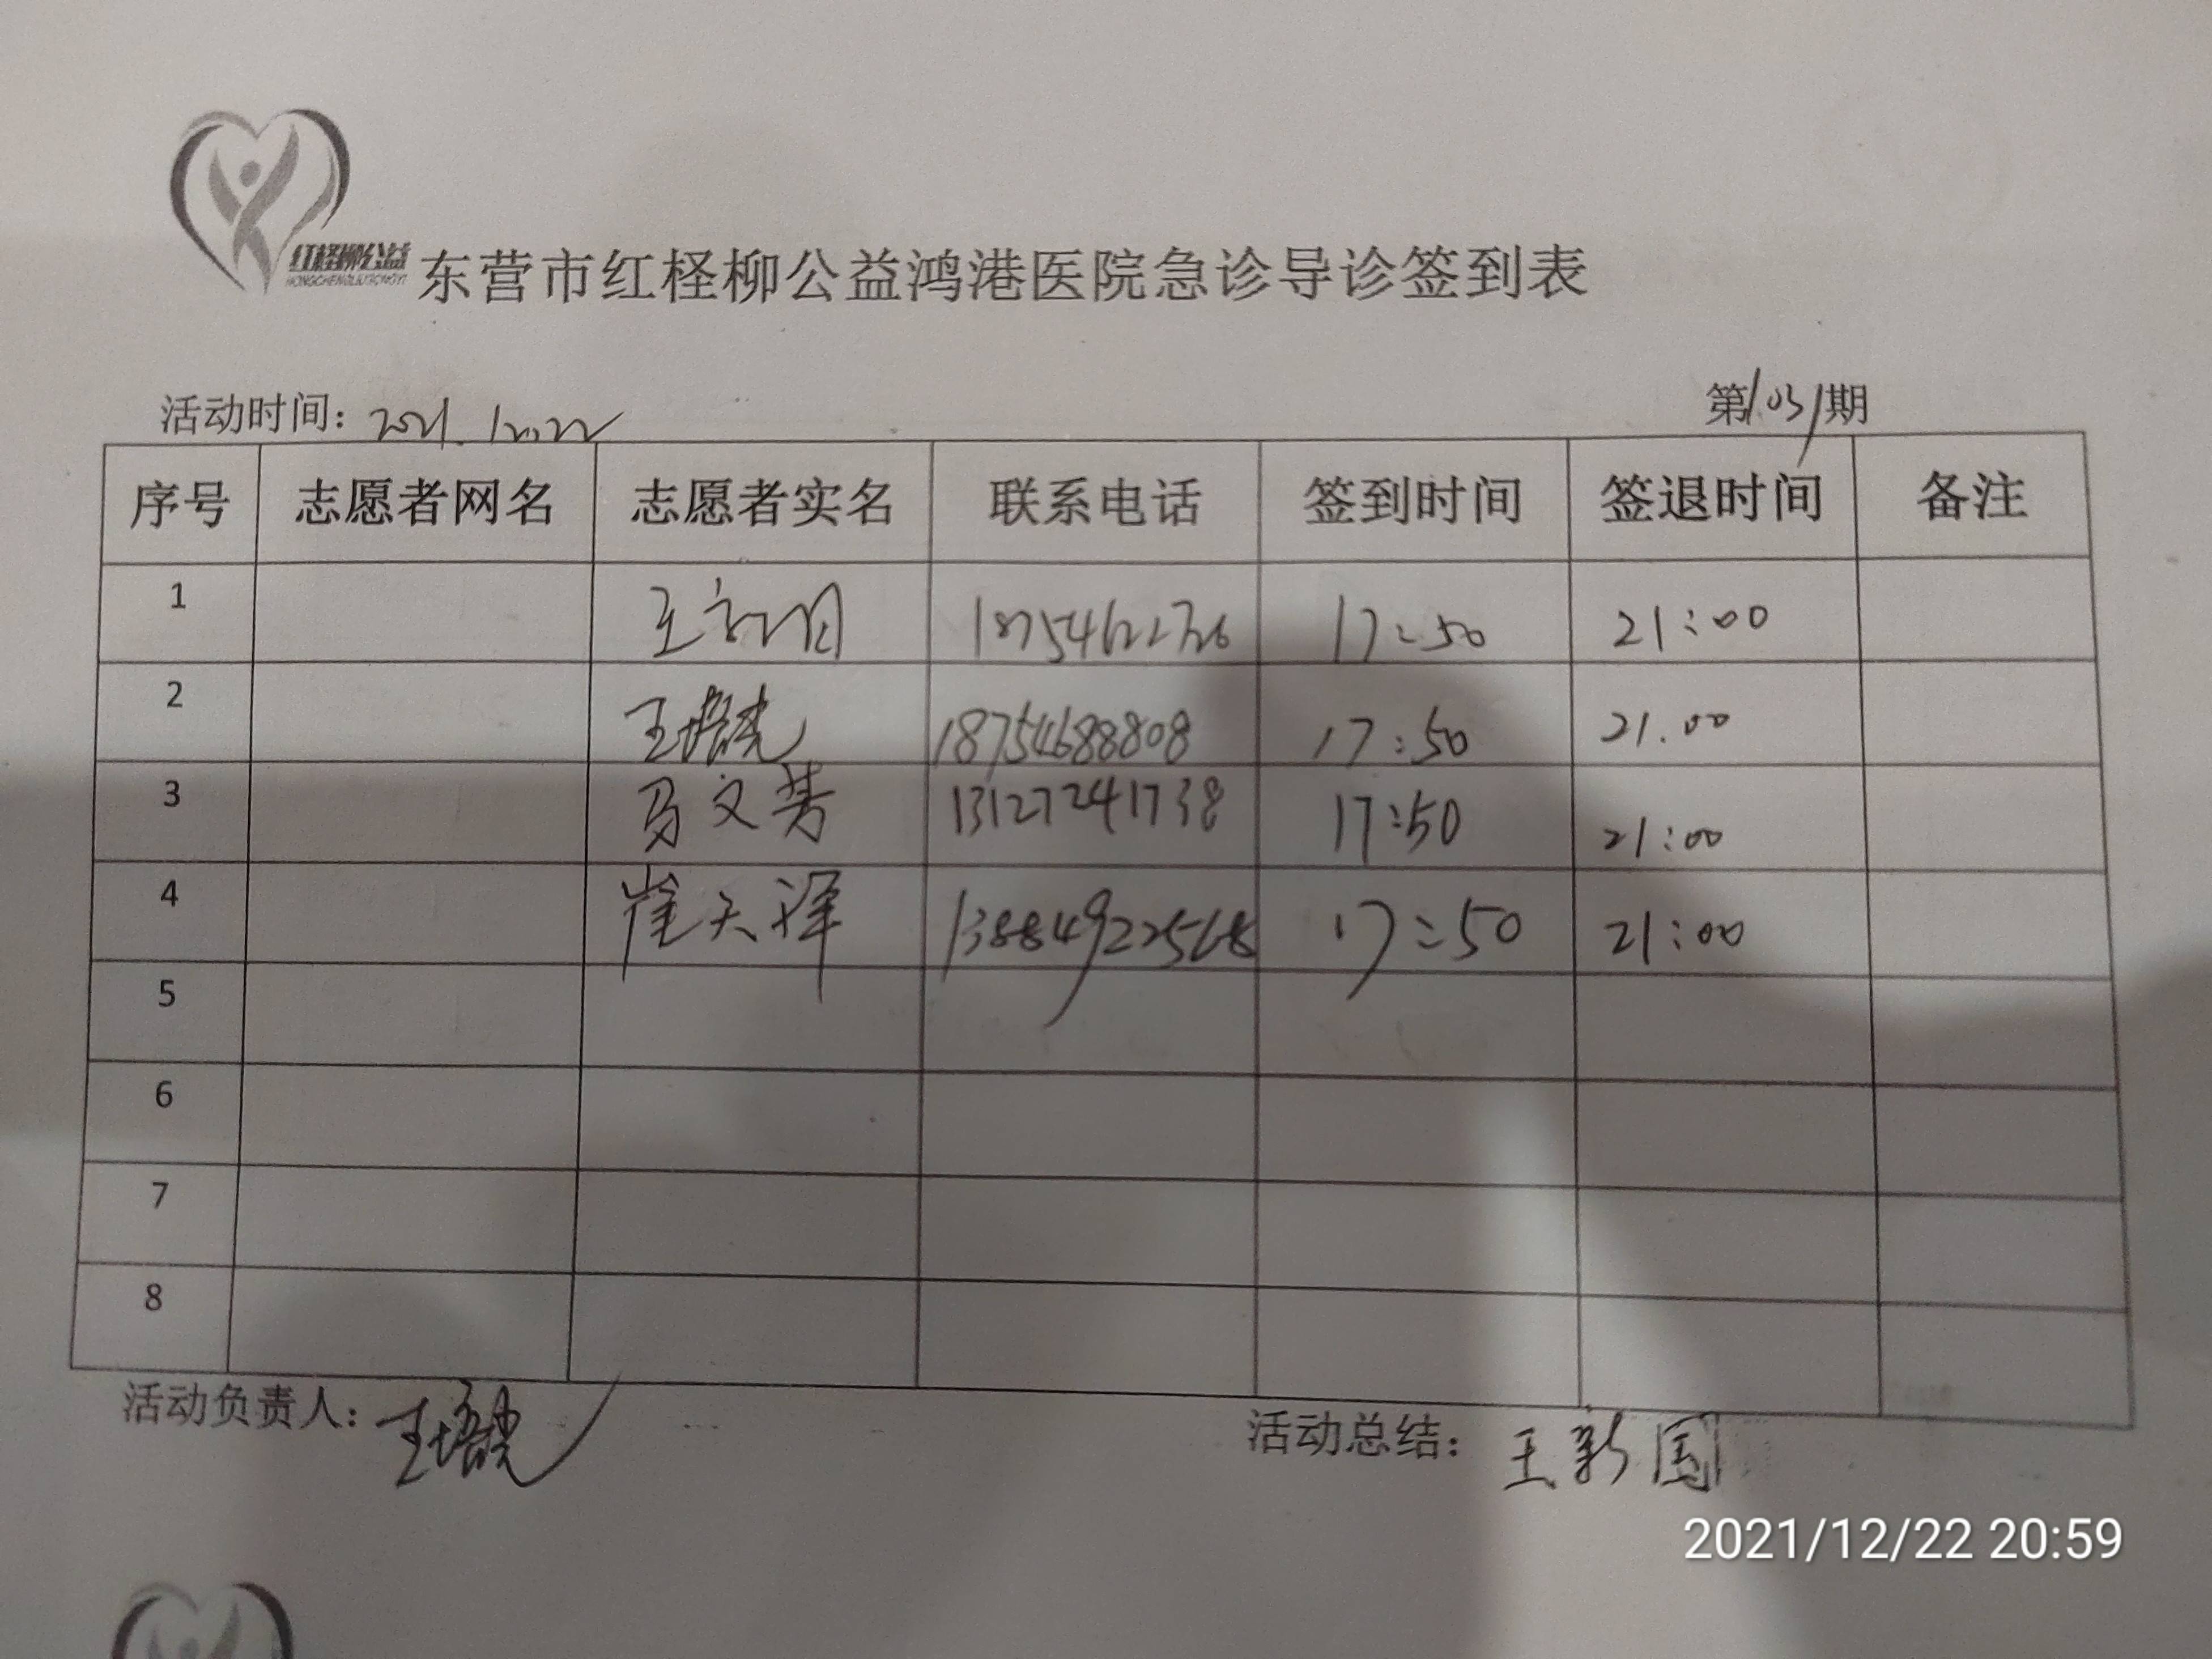 红柽柳公益
HONGCHENGLIUGONGYI
东营市红柽柳公益鸿港医院急诊导诊签到表
活动时间：2021.12.22 第1031期
序号 志愿者网名 志愿者实名 联系电话 签到时间 签退时间 备注
1 王 17:50 21:00
2 王 18754688808 17:50 21.00
3 马文芳 13127241738 17:50 21:00
4 崔天泽 13884922568 17:50 21:00
5
6
7
8
活动负责人：王 活动总结：王新国
2021/12/22 20:59